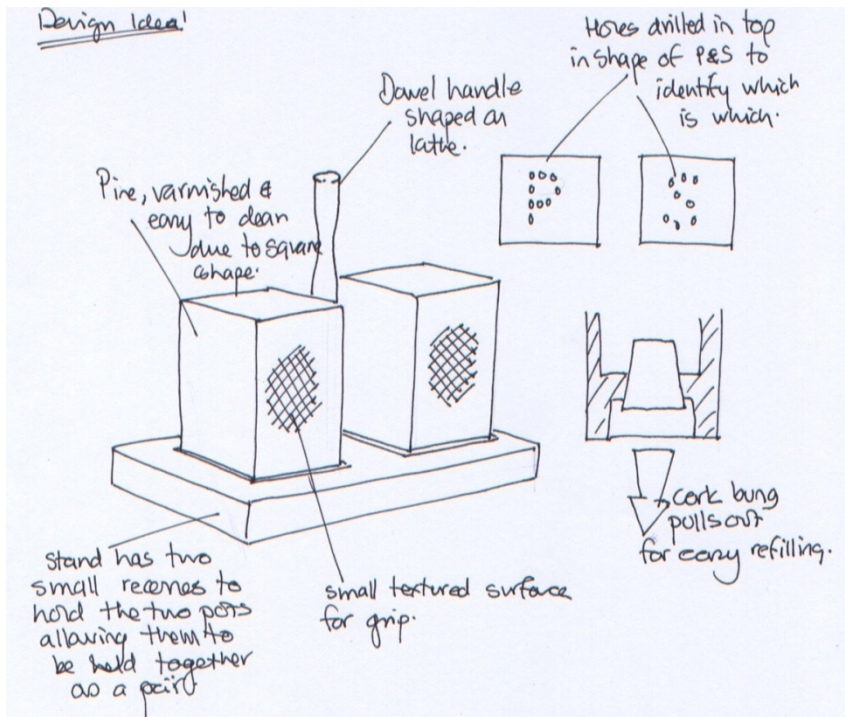 Design Idea!
Holes drilled in top
in shape of P&S to
identify which
is which.
Dowel handle
shaped on
lathe.
Pine, varnished &
easy to clean
due to square
shape.
cork bung
pulls out
for easy refilling.
stand has two
small recesses to
hold the two pots
allowing them to
be held together
as a pair.
small textured surface
for grip.